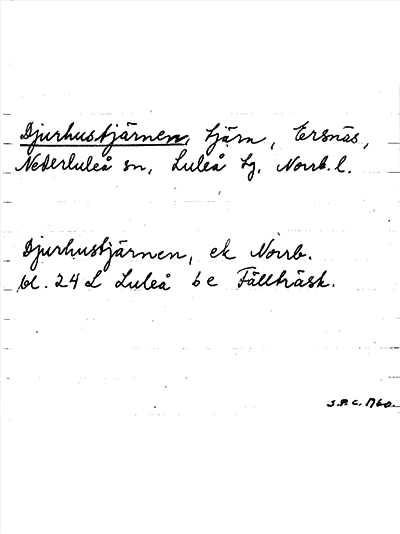 Djurhustjärnen, tjärn, Ersnäs,
Nederluleå sn, Luleå tg. Norrb. l.
Djurhustjärnen, ek Norrb.
bl. 24 L Luleå b e Fällträsk.